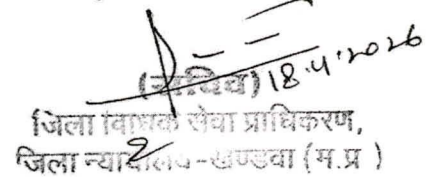 18.4.2026
(सचिव)
जिला विधिक सेवा प्राधिकरण,
2
जिला न्यायालय-खण्डवा (म.प्र )